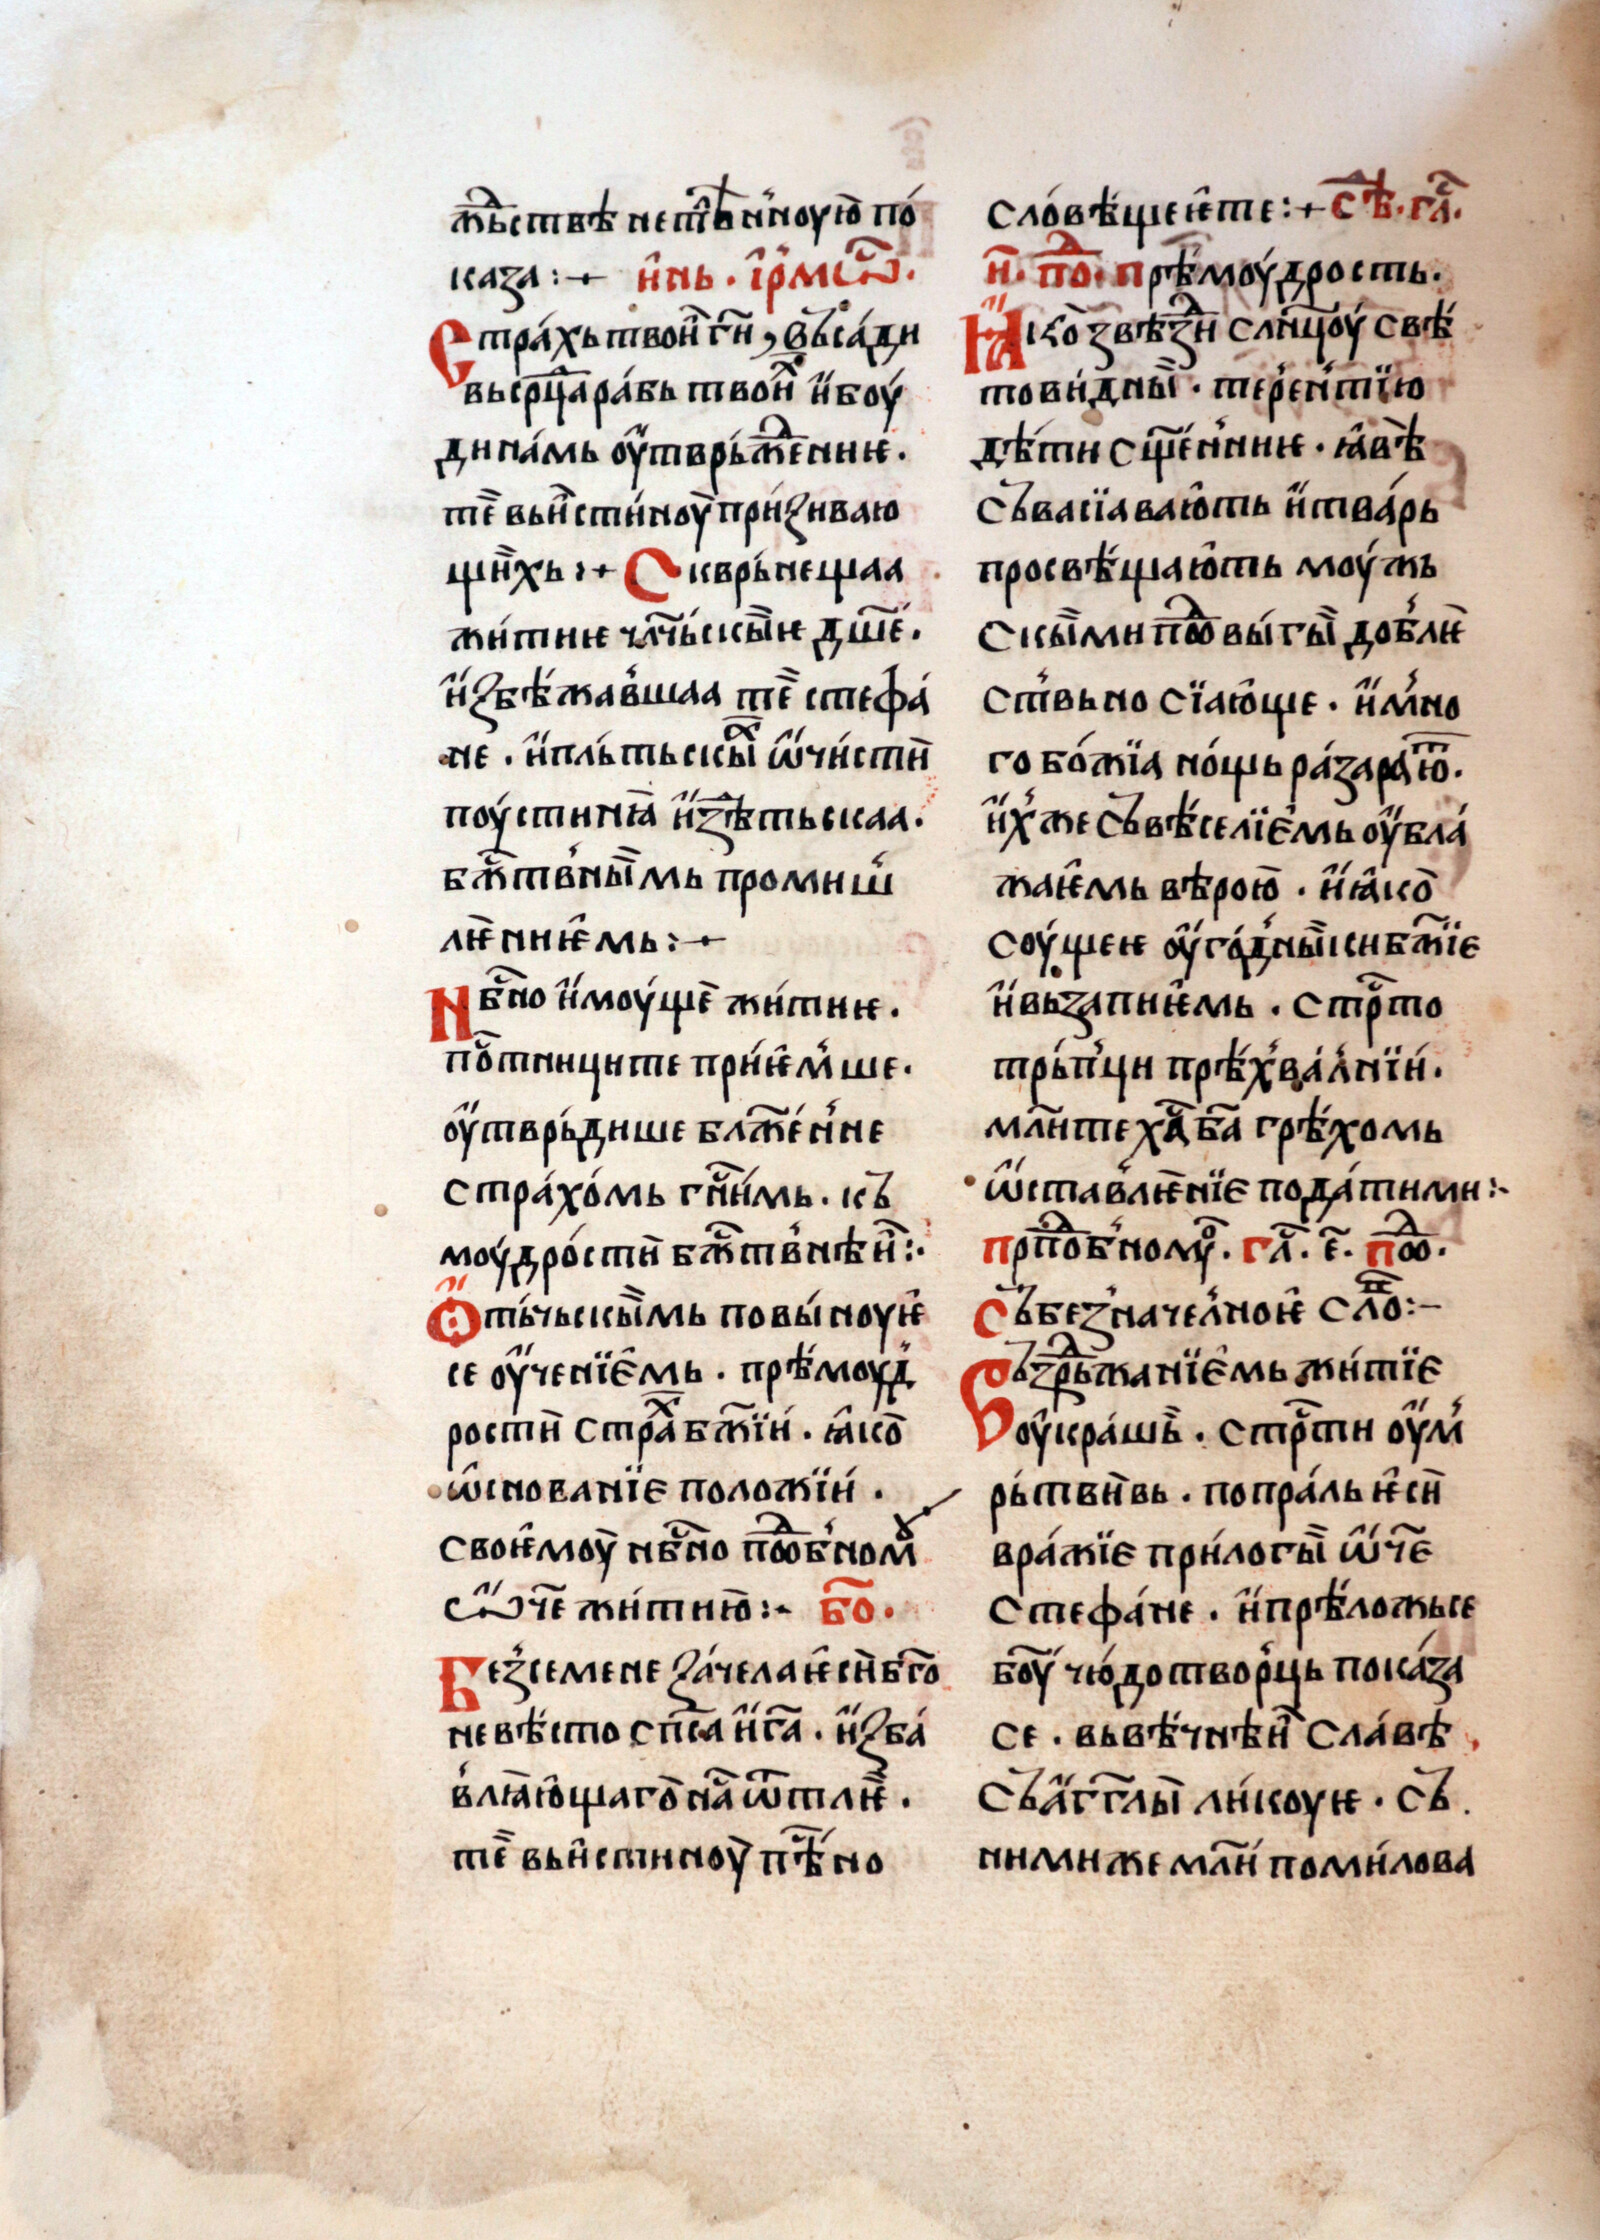 жьствѣ нетлѣн'ноую̀ по́
каза:·+ н҃нꙗ. і҆рмѡ҃с.
Стра́хь твои̏ г҃и, вьса́ди
вь ср҃ца ра́бь твои̏х и҆ боу́
ди на́мь ѹ҆твръж҃ение.
те̏ вь и҆́стиноу̀ призиваю
щи̏хь:·+ Скврь́нещаа
жи́тиѥ чл҃чьскы̏ѥ дш҃е́.
и҆ꙁбѣжа́вшаа те̏ стефа́
не. и҆ пль́тьскы̏х ѡ҆чи́сти̏
поу́стинꙗ̀ и҆ꙁѣтьскаа.
бж҃тв'ны̏мь промиш'
лѥ̏ниѥ҆мь:·+
Нб҃но и҆моу́ще̏ жи́тиѥ.
по̑тници те при́ѥ҆м'ше.
ѹ҆тврь́дише блаж҃е́н'не
стра́хо́мь гн҃и́мь. къ
моу́дро́сти̏ бж҃тв'нѣи̏:·
Ѻ҆ть́чьскы̏мь повы́ноуѥ҆
се ѹ҆чение҆мь. прѣ́моуд'
рости̏ стра̑х бж҃їи́. ꙗ҆ко̀
ѡ҆снованїе положїи́.
своѥ҆моу̀ нб҃но под҃об'ном
с ѡ҆ч҃е жи́тию̀:·- бо҃.
Без'семене ꙁа́чела ѥ҆си̏ бг҃о
невѣ́сто сп҃са и҆ г҃а. и҆ꙁба́
в'лꙗ̀ю҆щаго̀ на̑с ѿ тлѥ̏.
те̏ вь и҆́стиноу̀ пѣ̑сно
сло́вѣщеѥ҆ те:·+ с҃ѣ. гл҃.
и҃. по҃д. прѣ́моу́дрость.
Ꙗ҆ко̀ звѣ́зди̏ сл҃нцоу́ свѣ́
тови́дны̏ї. те́ре́н'тїю
дѣ́ти сщ҃е́н'ниѥ. ꙗ҆вѣ̀
съвасїаваю҆ть и҆ тва́рь
просвѣ́щаю҆ть моу́жь
скы̏ми под҃вы́гы̏ до́б'лѥ̀
ст'вьно сїаю҆ще. и҆ м'но
го бо́жїа но́щь ра́зара̑ю.
и҆х' же съвѣ́селїе҆мь ѹ҆бла́
жаѥ҆мь вѣрою̀. и҆ ꙗ҆ко̀
соу́щеѥ ѹ҆го́д'ны̏ки бж҃їе
и҆ вьзапиѥ҆мь. стр҃то
трь́п'ци прѣ́х'ва́л'нїи́.
мл҃ите хд҃а ба҃ грѣ́хомь
ѡ҆ста́в'лѥ̏нїе пода́ти ми:·-
прп҃об'номꙋ̀. гл҃. є҃. под҃.
съ без'начел'ноѥ҆ сло҃:·-
Въздрь̑жанїе҆мь жи́тїе
ѹ҆кра́шь̀. стр҃ти ѹ҆м'
рь́тви̏вь. попра́ль ѥ҆си̏
вра́жїе при́логы̏ ѡ҆ч҃е
стефа́не. и҆ прѣ́ложьсе
бо҃у чю́дотвор'ць пока́за
се. вь вѣ́чнѣи̏ сла́вѣ
съ а҆гг҃лы̏ ли́коуѥ. съ
ними же мл҃и поми́лова